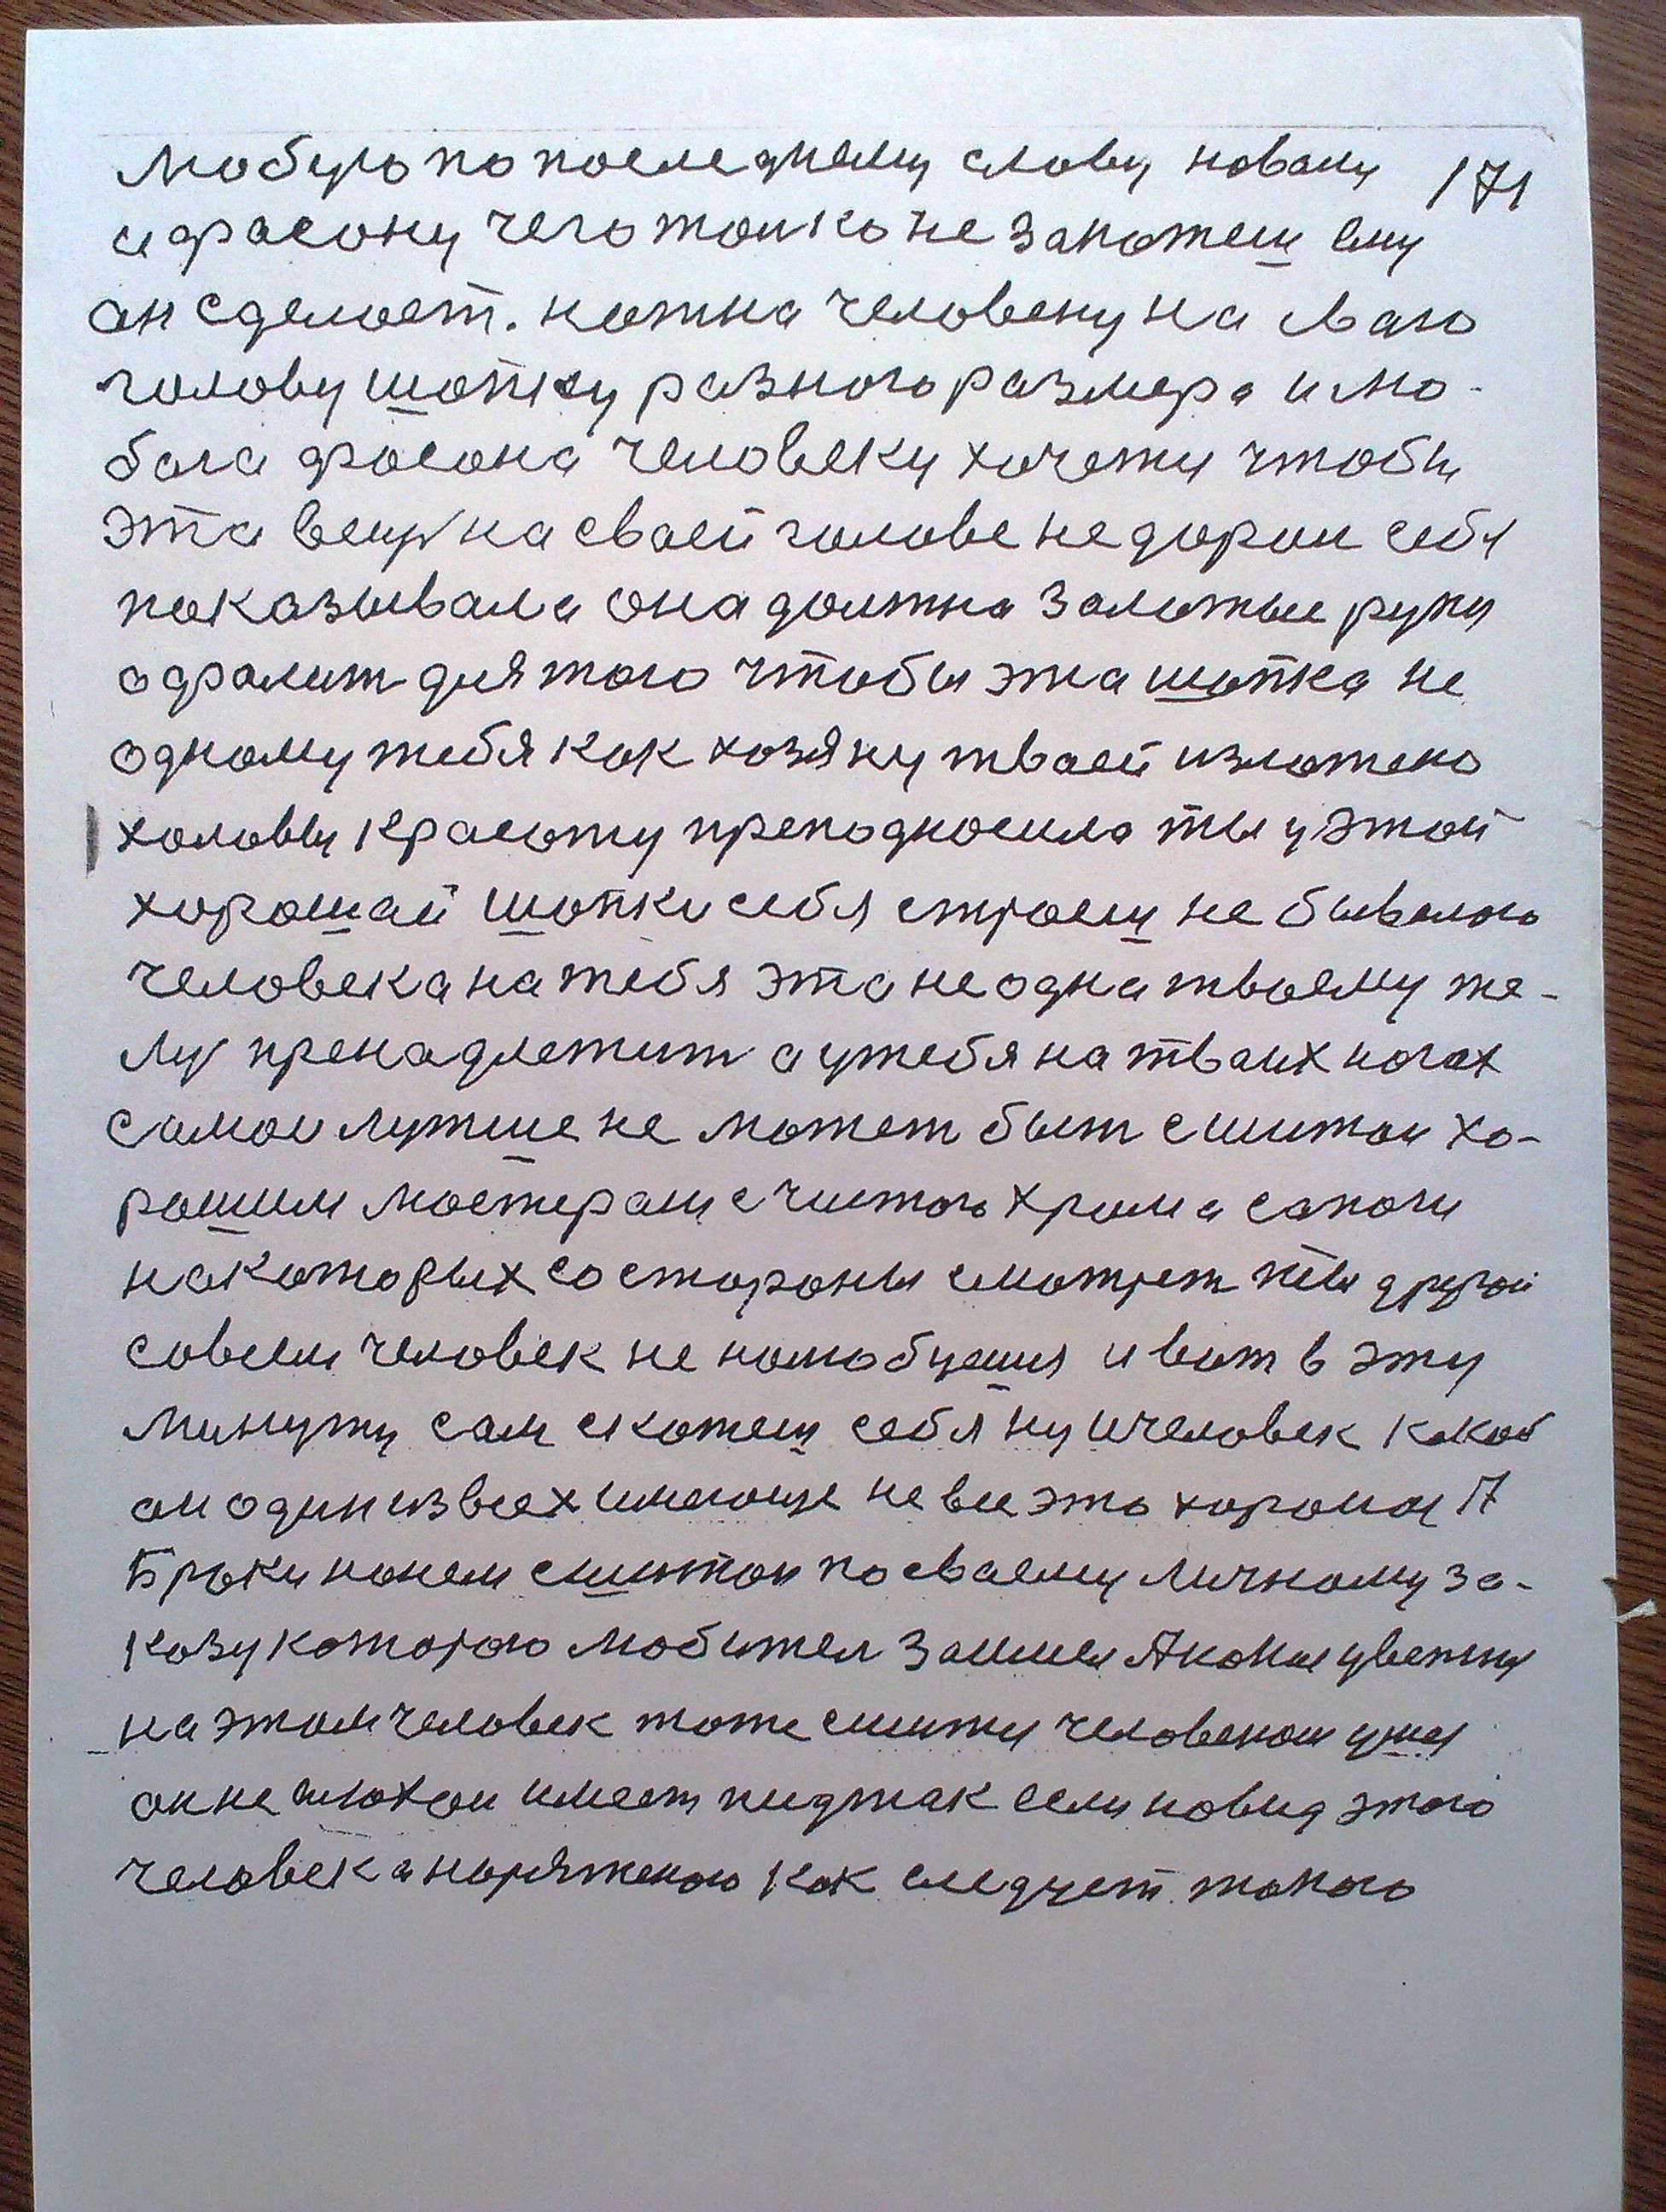 любую по последнему слову новаму 171
и фасону чего толко не закажеш ему
он сделает. нужна человеку на сваю
голову шапку разного размера и лю-
бога фасона человеку хочется чтобы
эта вещ на сваей голове не даром себя
показывала она должна залотые руки
офралит для того чтобы эта шапка не
одному тебя как хозяну тваей изложено
холовы красоту преподносила ты у этой
хорошай шапки себя строеш не бывалого
человека на тебя эта не одна тваему те-
лу пренадлежит а у тебя на тваих ногах
самои лутше не может быт сшитои хо-
рошим мастерам с чистого хрома сапоги
на каторых со стороны смотрет ты другой
совсем человек не налюбуешся и вот в эту
минуту сам скажеш себя ну и человек какой
он один из всех имеюще не все это хорошое 17
Брюки на нем сшитои по сваему личному за-
казу которого любител зашел Якоми цветки
на этом человек тоже сшиты человеком уже
он не плохои имеет пиджак если на вид этого
человека наряженого как следует такого